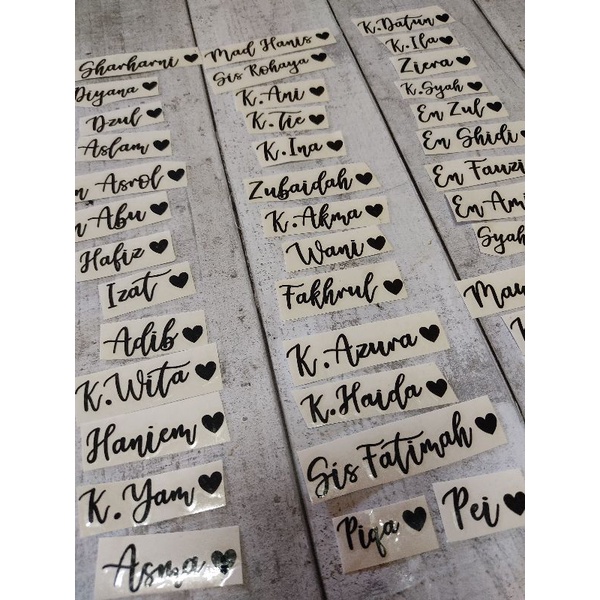 Sharharni
Diyana
Dzul
Aslam
Asrol
Abu
Hafiz
Izat
Adib
K.Wita
Haniem
K.Yam
Asma
Mad Hanis
Sis Rohaya
K.Ani
K.Tie
K.Ina
Zubaidah
K.Akma
Wani
Fakhrul
K.Azura
K.Haida
Sis Fatimah
Piqa
Pei
K.Datun
K.Ila
Ziera
K.Syah
En Zul
En Shidi
En Fauzi
En Ami
Syah